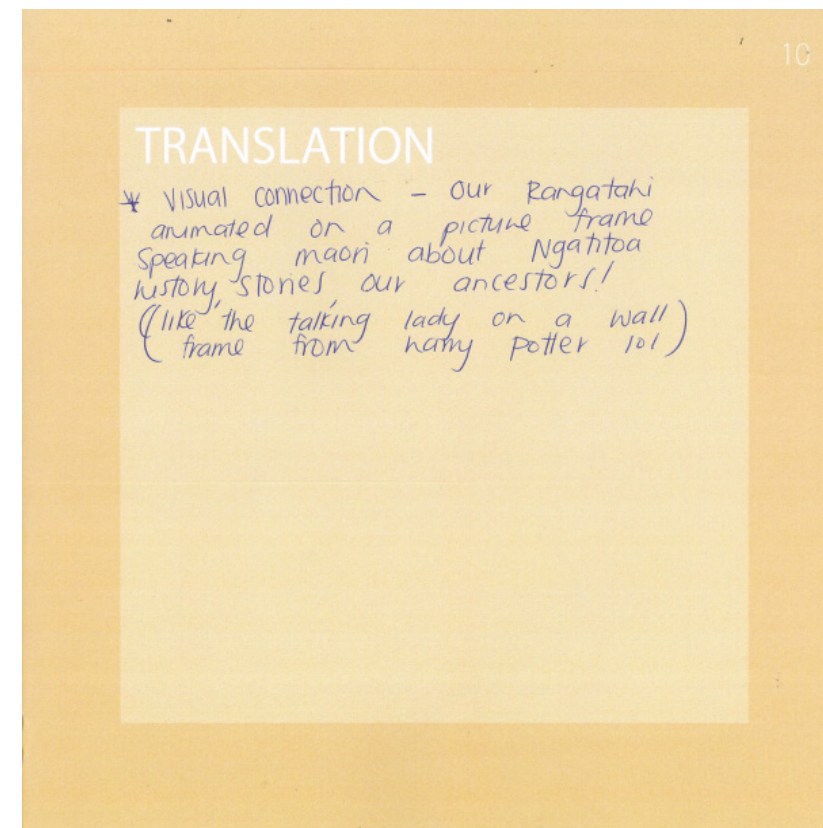 1C
TRANSLATION
* Visual connection - Our Rangatahi
animated on a picture frame
Speaking maori about Ngatitoa
history, stories our ancestors!
(like the talking lady on a wall
frame from harry potter lol)